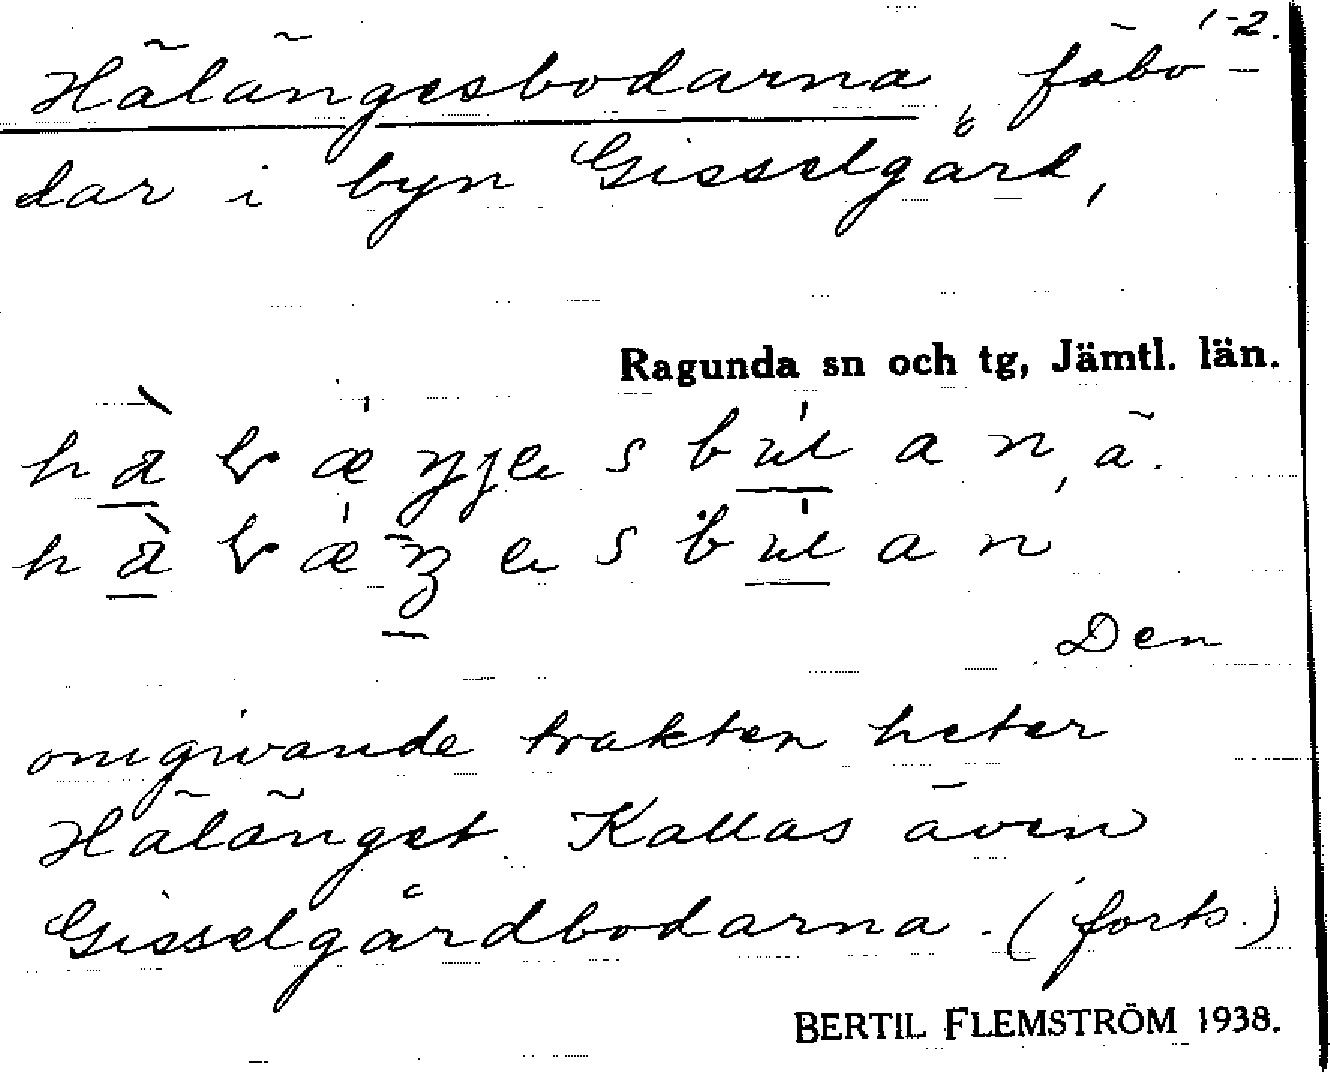 1-2.
Hälängesbodarna, fäbo-
dar i byn Gisselgård,
Ragunda sn och tg, Jämtl. län.
Den
omgivande trakten heter
Hälänget. Kallas även
Gisselgårdbodarna. (forts.)
BERTIL FLEMSTRÖM 1938.